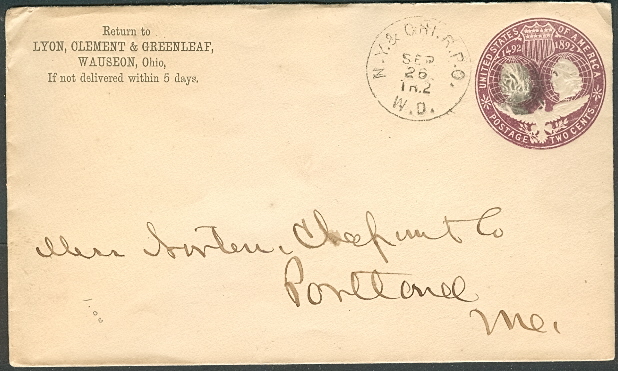 Return to
LYON, CLEMENT & GREENLEAF,
WAUSEON, Ohio,
If not delivered within 5 days.
N.Y. & CHI. R.P.O.
SEP
26
TR.2
W.D.
UNITED STATES OF AMERICA
1492 1892
POSTAGE TWO CENTS
Mess Norton, Chapman & Co
Portland
Me.
1.00